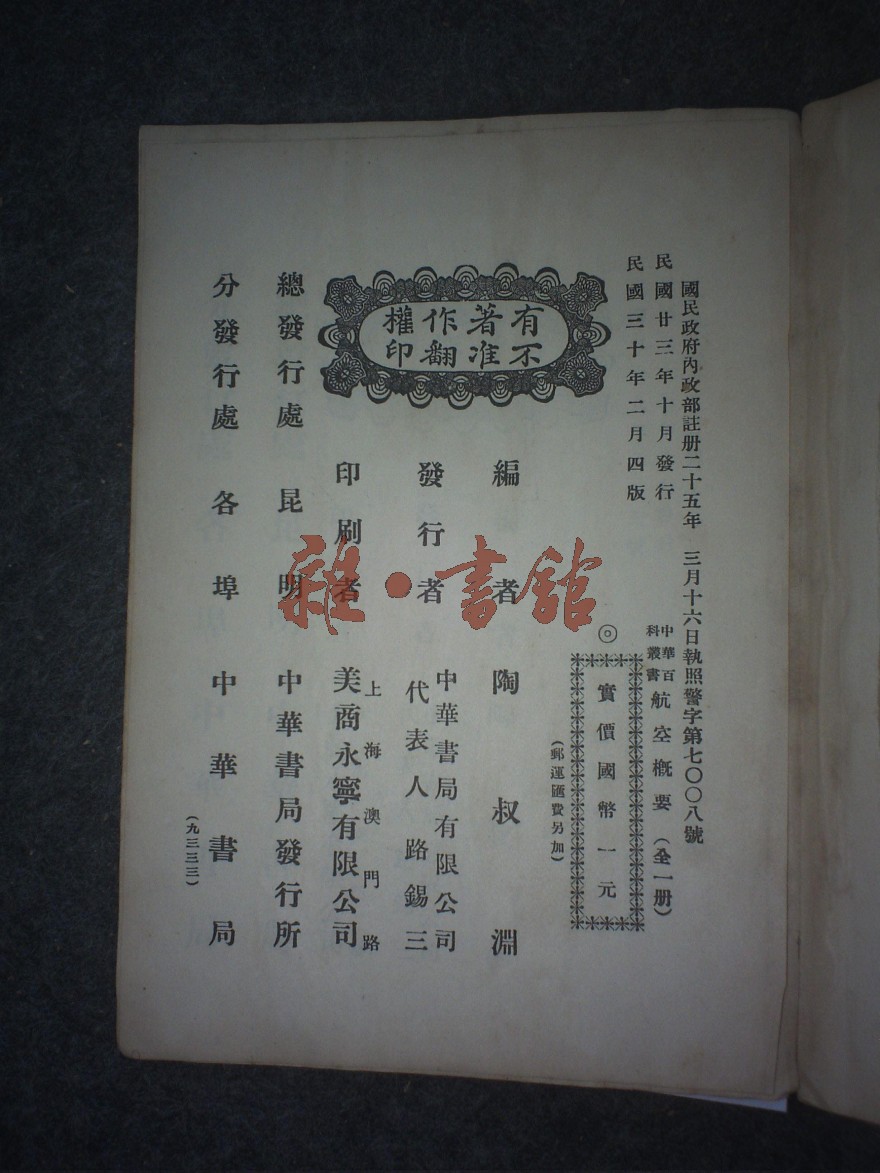 國民政府內政部註册二十五年 三月十六日執照警字第七〇〇八號
民國廿三年十月發行
民國三十年二月四版
中華百科叢書 航空概要（全一册）
◎ 實價國幣一元
（郵運匯費另加）
有著作權
不准翻印
編者 陶叔淵
發行者 中華書局有限公司
代表人路錫三
印刷者 上海澳門路
美商永寧有限公司
總發行處 昆明 中華書局發行所
分發行處 各埠 中華書局
（九三三三）
雜·書館